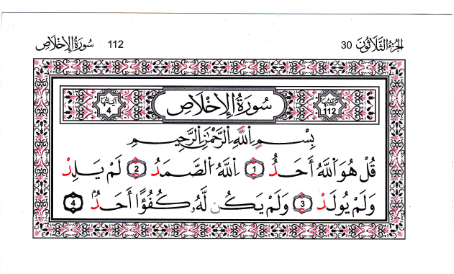 الجزء الثلاثون 30
سورة الإخلاص 112
سُورَةُ الإِخْلَاصِ
112
4
بِسْمِ اللَّهِ الرَّحْمَٰنِ الرَّحِيمِ
قُلْ هُوَ اللَّهُ أَحَدٌ 1 اللَّهُ الصَّمَدُ 2 لَمْ يَلِدْ
وَلَمْ يُولَدْ 3 وَلَمْ يَكُن لَّهُۥ كُفُوًا أَحَدٌ 4